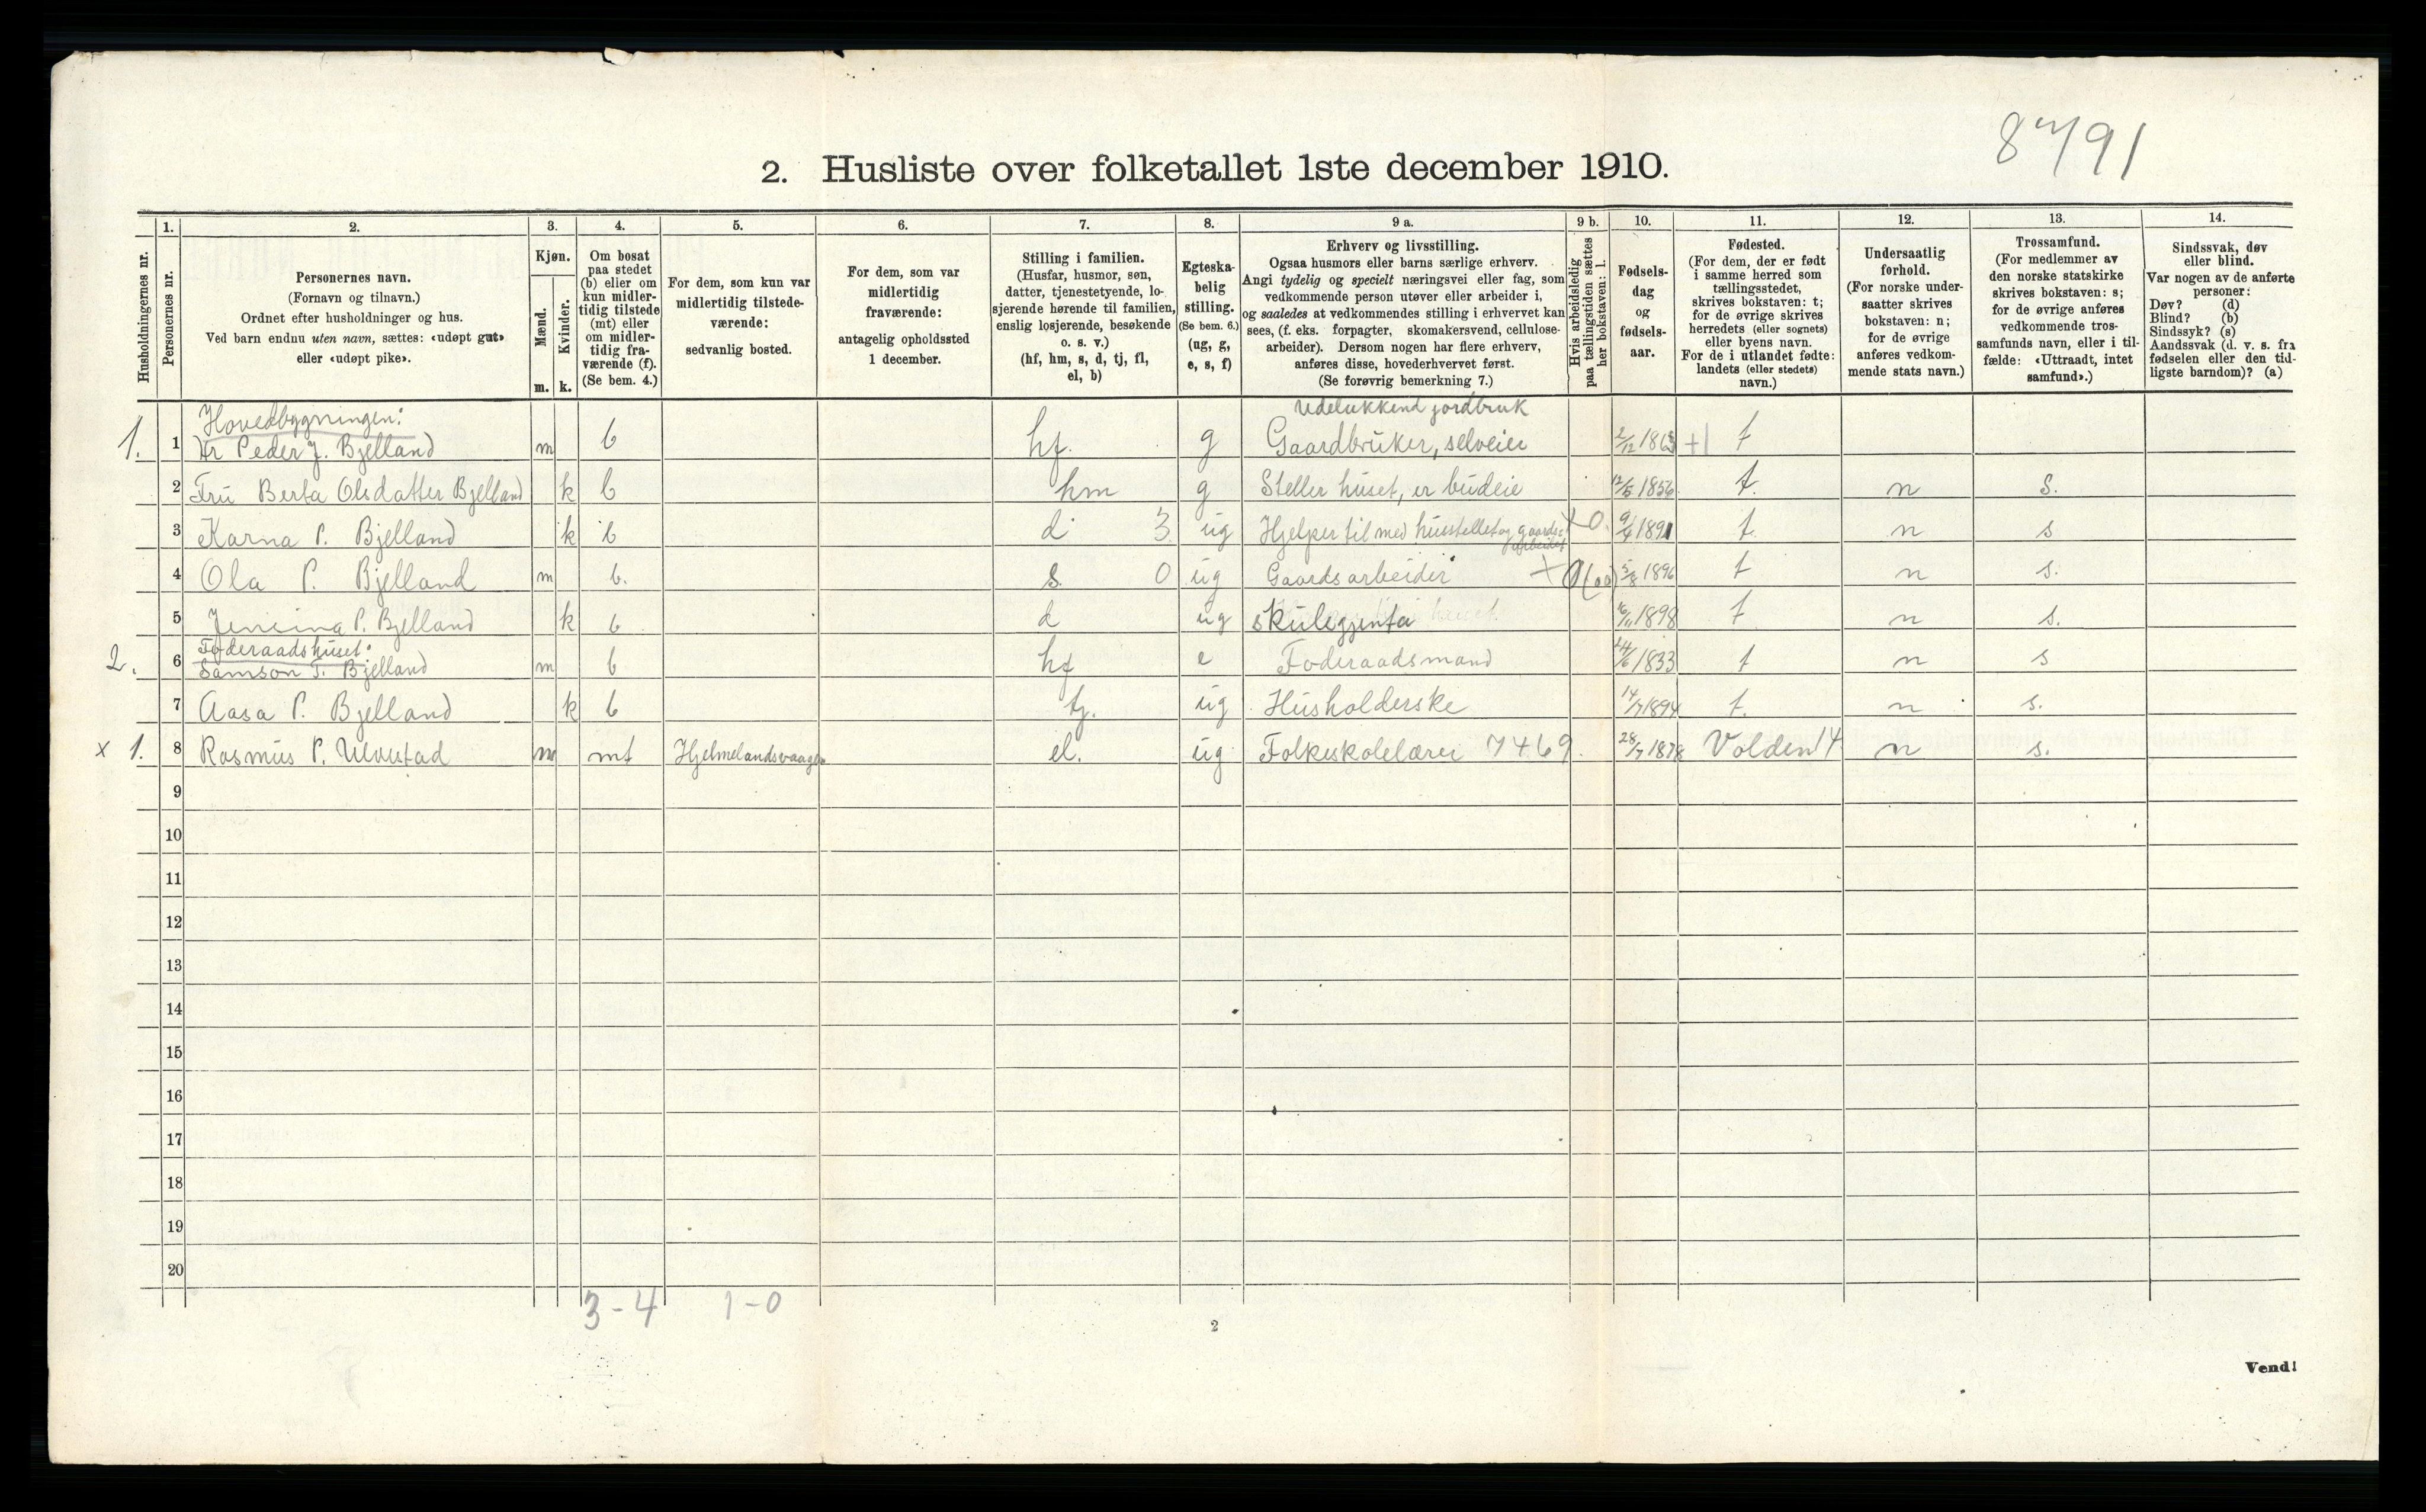 87/91
2. Husliste over folketallet 1ste december 1910.
Husholdningernes nr.
1. Personernes nr.
2. Personernes navn.
(Fornavn og tilnavn.)
Ordnet efter husholdninger og hus.
Ved barn endnu uten navn, sættes: «udøpt gut»
eller «udøpt pike».
3. Kjøn.
Mænd. m.
Kvinder. k.
4. Om bosat
paa stedet
(b) eller om
kun midler-
tidig tilstede
(mt) eller
om midler-
tidig fra-
værende (f).
(Se bem. 4.)
5. For dem, som kun var
midlertidig tilstede-
værende:
sedvanlig bosted.
6. For dem, som var
midlertidig
fraværende:
antagelig opholdssted
1 december.
7. Stilling i familien.
(Husfar, husmor, søn,
datter, tjenestetyende, lo-
sjerende hørende til familien,
enslig losjerende, besøkende
o. s. v.)
(hf, hm, s, d, tj, fl,
el, b)
8. Egteska-
belig
stilling.
(Se bem. 6.)
(ug, g,
e, s, f)
9 a. Erhverv og livsstilling.
Ogsaa husmors eller barns særlige erhverv.
Angi tydelig og specielt næringsvei eller fag, som
vedkommende person utøver eller arbeider i,
og saaledes at vedkommendes stilling i erhvervet kan
sees, (f. eks. forpagter, skomakersvend, cellulose-
arbeider). Dersom nogen har flere erhverv,
anføres disse, hovederhvervet først.
(Se forøvrig bemerkning 7.)
9 b. Hvis arbeidsledig
paa tællingstiden sættes
her bokstaven: l.
10. Fødsels-
dag
og
fødsels-
aar.
11. Fødested.
(For dem, der er født
i samme herred som
tællingsstedet,
skrives bokstaven: t;
for de øvrige skrives
herredets (eller sognets)
eller byens navn.
For de i utlandet fødte:
landets (eller stedets)
navn.)
12. Undersaatlig
forhold.
(For norske under-
saatter skrives
bokstaven: n;
for de øvrige
anføres vedkom-
mende stats navn.)
13. Trossamfund.
(For medlemmer av
den norske statskirke
skrives bokstaven: s;
for de øvrige anføres
vedkommende tros-
samfunds navn, eller i til-
fælde: «Uttraadt, intet
samfund».)
14. Sindssvak, døv
eller blind.
Var nogen av de anførte
personer:
Døv? (d)
Blind? (b)
Sindssyk? (s)
Aandssvak (d. v. s. fra
fødselen eller den tid-
ligste barndom)? (a)
Hovedbygningen: Udelukkend jordbruk
1. 1 Hr Peder J. Bjelland m b hf. g Gaardbruker, selveier 2/12 1863 +1 t
2 Fru Berta Olsdatter Bjelland k b hm g Steller huset, er budeie 12/5 1856 t. n s.
3 Karna P. Bjelland k b d 3 ug Hjelper til med husstellet og gaards-
arbeidet +0. 9/4 1891 t. n s
4 Ola P. Bjelland m b. s. 0 ug Gaardsarbeider + 5/8 1896 t n s.
5 Jensina P. Bjelland k b d ug skulegjenta 16/11 1898 t n s.
Foderaadshuset:
2. 6 Samson T. Bjelland m b hf e Foderaadsmand 24/6 1833 t n s
7 Aasa P. Bjelland k b tj. ug Husholderske 14/7 1894 t. n s.
x 1. 8 Rasmus P. Ulvestad m mt Hjelmelandsvaagen el. ug Folkeskolelærer 7469. 28/7 1878 Volden 14 n s.
9
10
11
12
13
14
15
16
17
18
19
20
3-4 1-0
2
Vend!